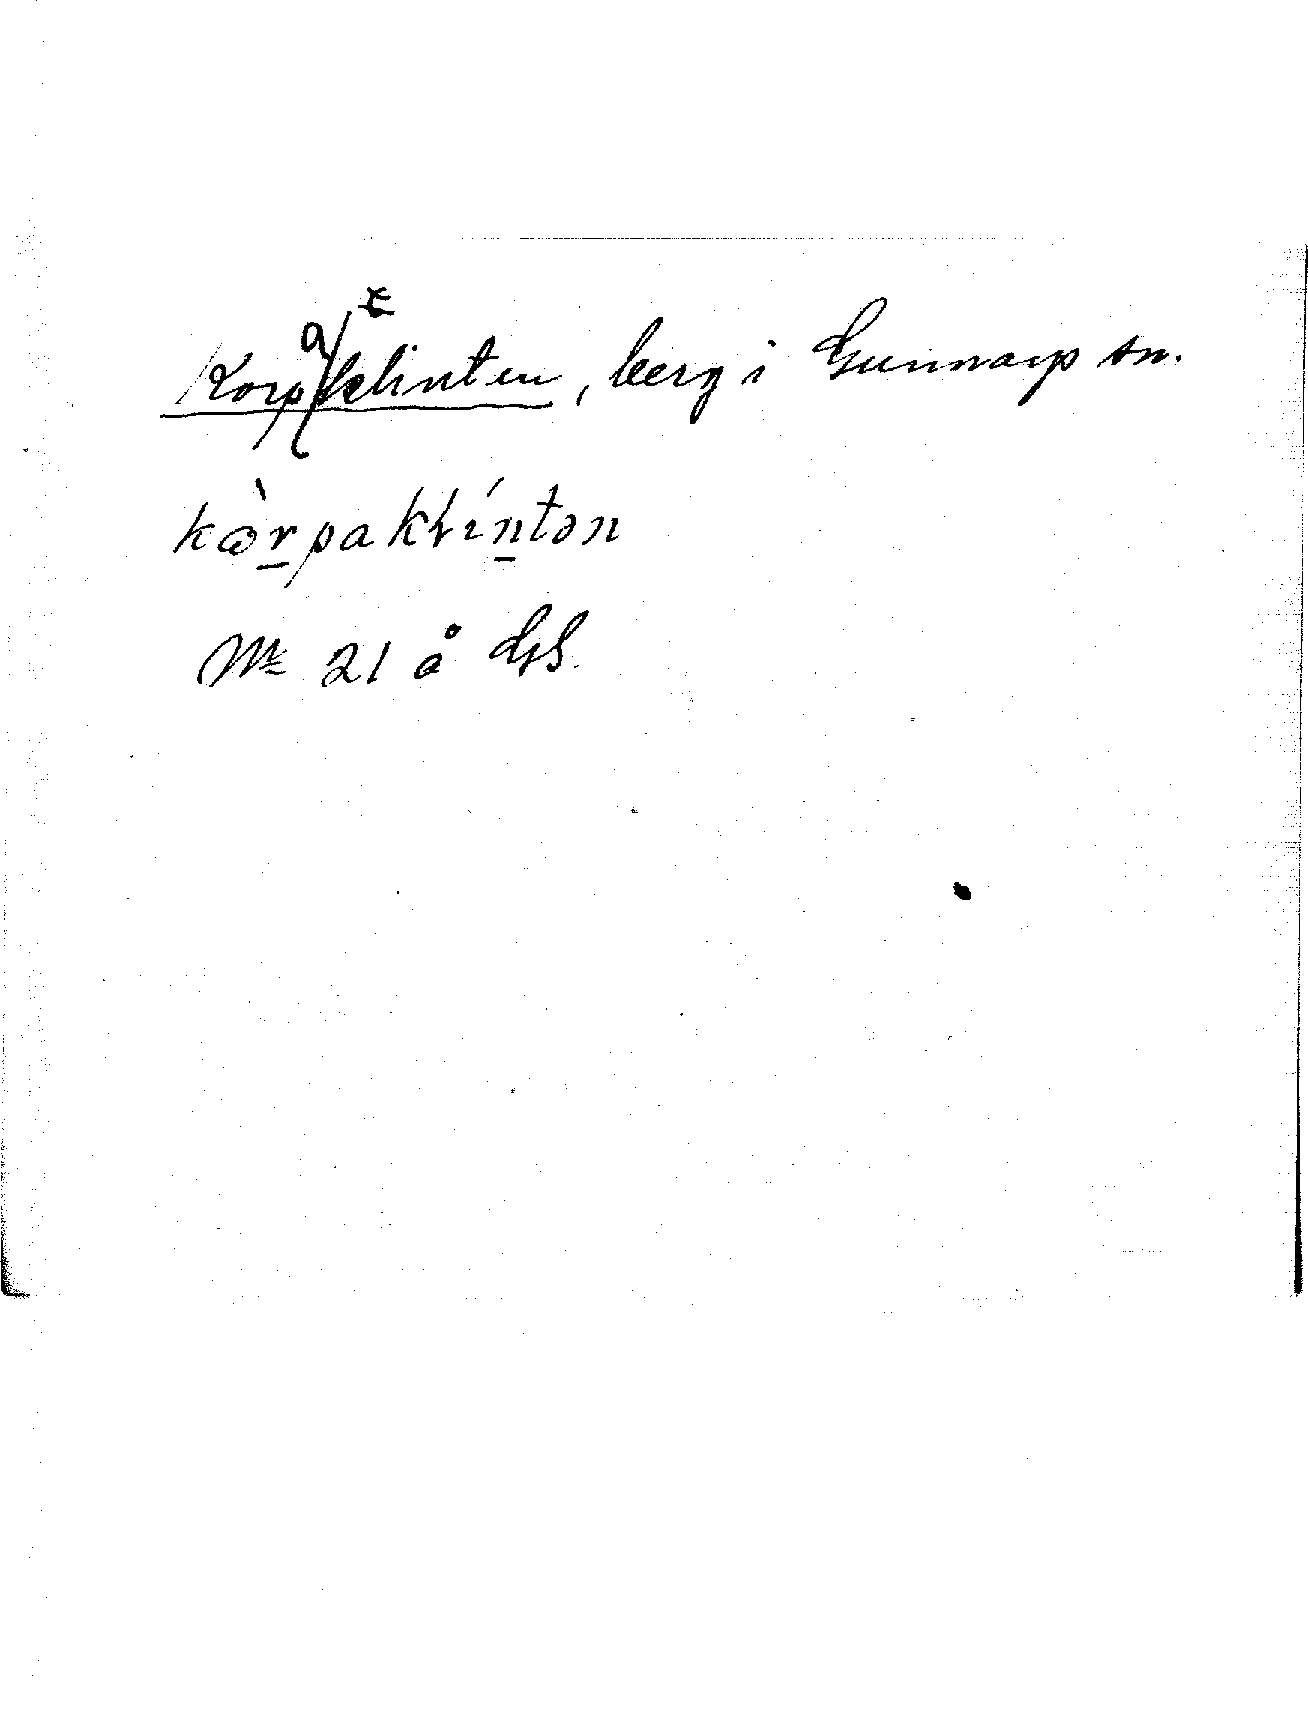 Korpaklinten, berg i Gunnarp sn.
kɷ̀r̲paklín̲tən
Mk 21 å GS.